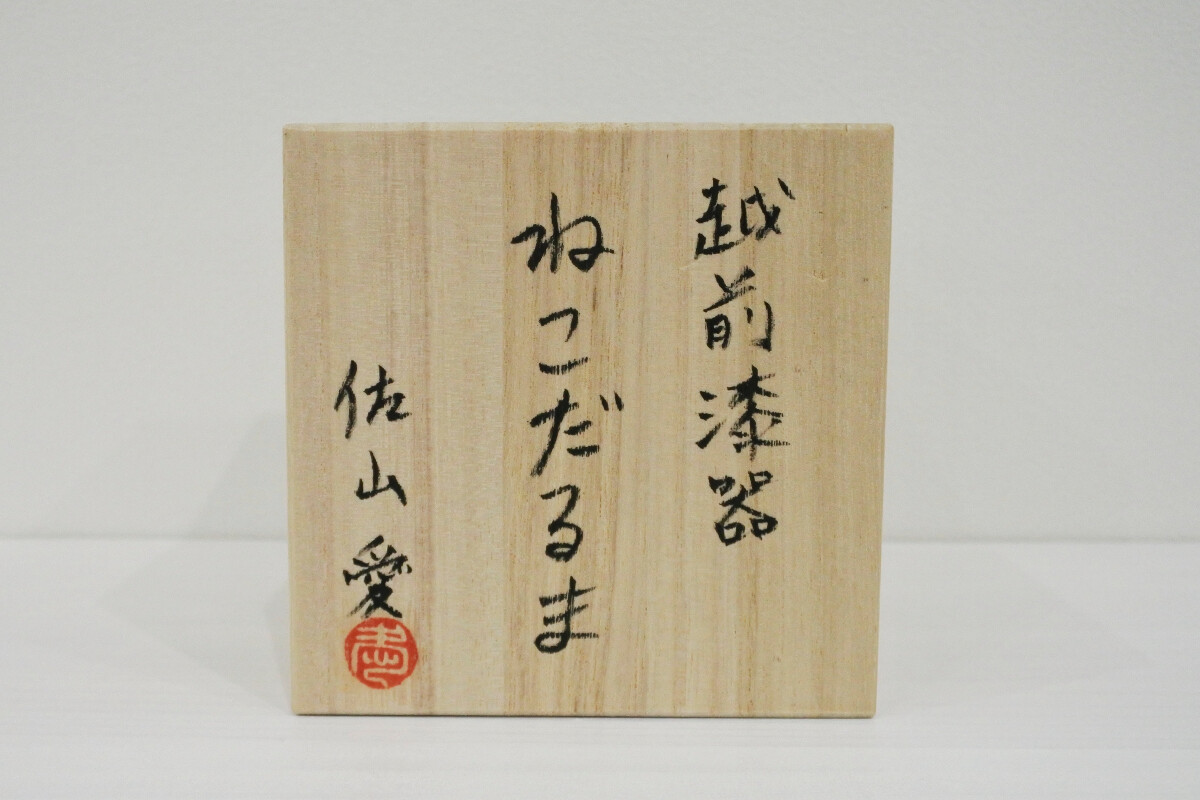 越前漆器
ねこだるま
佐山愛